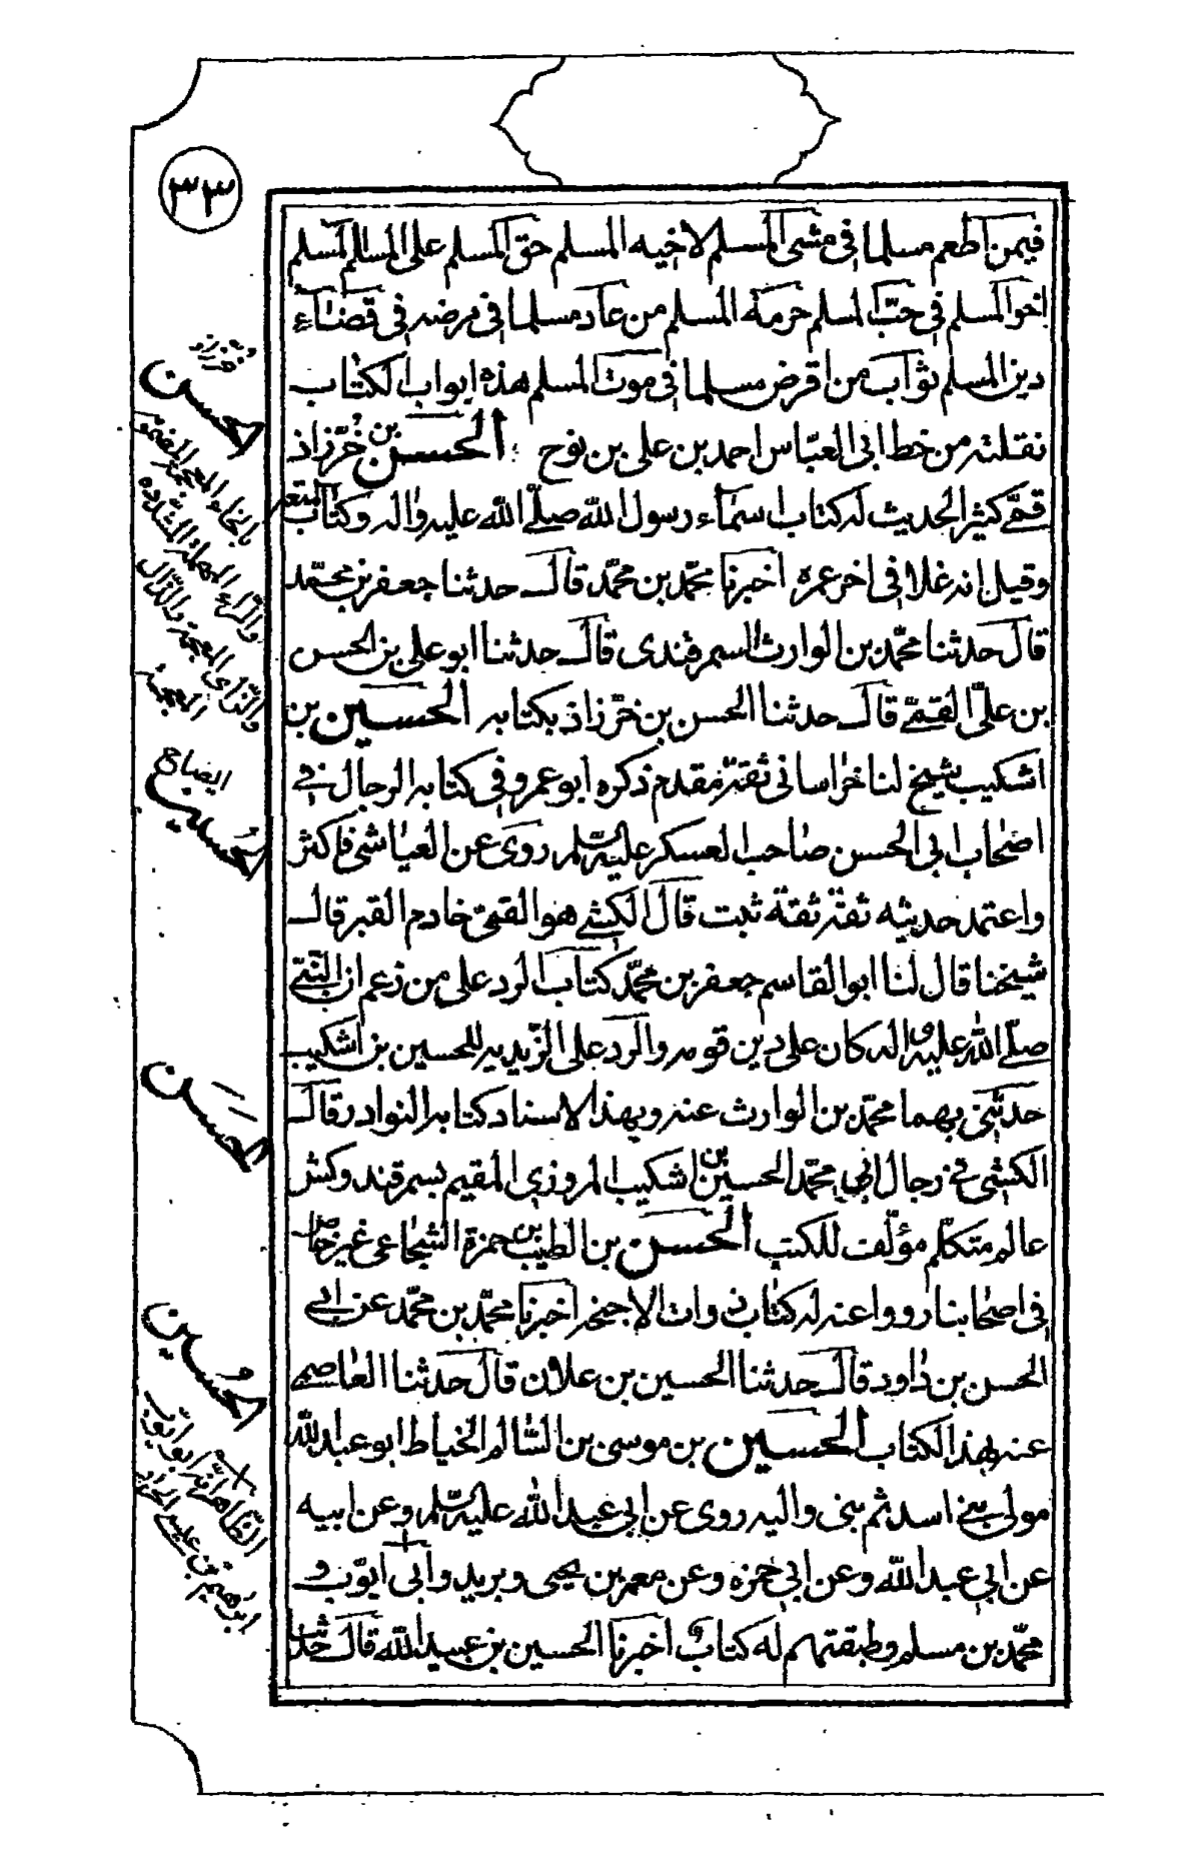 ٣٣
فيمن اطعم مسلما في مشى المسلم لاخيه المسلم حق المسلم على المسلم المسلم
اخو المسلم في حبّ المسلم حرمة المسلم من عاد مسلما في مرضه في قضاء
دين المسلم ثواب من اقرض مسلما في موت المسلم هذه ابواب الكتاب
نقلته من خط ابي العبّاس احمد بن علي بن نوح الحسن بن خرّزاذ
قمّي كثير الحديث له كتاب اسماء رسول الله صلّى الله عليه واله وكتاب المتعة
وقيل انه غلا في اخر عمره اخبرنا محمّد بن محمّد قال حدثنا جعفر بن محمّد
قال حدثنا محمّد بن الوارث السمرقندى قال حدثنا ابو علي بن الحسن
بن علىّ القمّي قال حدثنا الحسن بن خرّزاذ بكتابه الحسين بن
اشكيب شيخ لنا خراسانى ثقة مقدم ذكره ابو عمرو في كتابه الرجال في
اصحاب ابى الحسن صاحب العسكر عليه السّلم روى عن العياشي فاكثر
واعتمد حديثه ثقة ثقة ثبت قال الكشي هو القمّى خادم القبر قال
شيخنا قال لنا ابو القاسم جعفر بن محمّد كتاب الرد على من زعم ان النّبي
صلّى الله عليه واله كان على دين قومه والرد على الزّيديه للحسين بن اشكيب
حدثني بهما محمّد بن الوارث عنه وبهذا الاسناد كتابه النوادر قال
الكشي في رجال ابي محمّد الحسين بن اشكيب المروزي المقيم بسمرقند وكش
عالم متكلّم مؤلّف للكتب الحسن بن الطيب بن حمزة الشجاعى غير خاص
في اصحابنا رووا عنه له كتاب ذوات الاجنحه اخبرنا محمّد بن محمّد عن ابي
الحسن بن داود قال حدثنا الحسين بن علان قال حدثنا العاصمي
عنه بهذا الكتاب الحسين بن موسى بن السّالم الخياط ابو عبد الله
مولى بني اسد ثم بنى والبه روى عن ابي عبد الله عليه السّلم وعن ابيه
عن ابي عبد الله وعن ابي حمزه وعن معمر بن يحيى وبريد وابى ايوّب و
محمّد بن مسلم وطبقتهم له كتاب اخبرنا الحسين بن عبيد الله قال حدثنا
خرزاد
الحسن
بالخاء المعجمة المضمومة
والرّاء المهملة المشّدده
والزّاى المعجمة والذّال
المعجمة
الحسين
الحسن
الحُسين
الظّاهر انّه ابو ايّوب
ابرهيم بن عيسى الخراز